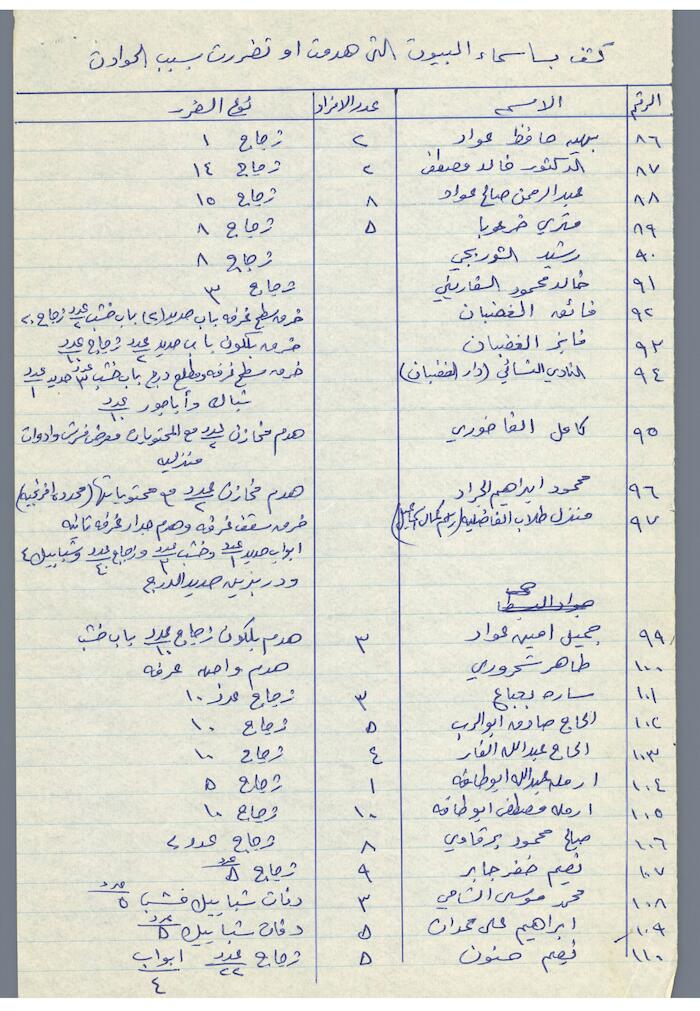 كشف باسماء البيوت التى هدمت او تضررت بسبب الحوادث
الرقم الاسم عدد الافراد نوع الضرر
٨٦ بهيه حافظ عواد ٢ زجاج ١
٨٧ الدكتور خالد مصطفى ٢ زجاج ١٤
٨٨ عبد الرحمن صالح عواد ٨ زجاج ١٥
٨٩ متري خرعوبا ٥ زجاج ٨
٩٠ رشيد الشوربجي زجاج ٨
٩١ خالد محمود السفاريني زجاج ٣
٩٢ فائق الغضبان خرق سطح غرفه باب حديد (٢) باب خشب عدد ٢ زجاج ٢٠
٩٣ فايز الغضبان خرق بلكون باب حديد عدد ٢ زجاج عدد ١٠
٩٤ النادي النسائي (دار الغضبان) خرق سطح غرفه ومطلع درج باب خشب عدد ٣ حديد عدد ١
شباك وأباجور عدد ١٠
٩٥ كامل الفاخوري هدم مخازن عدد ٢ مع المحتويات معرض فرش وادوات
منزليه
٩٦ محمود ابراهيم الجراد هدم مخازن عدد ٢ مع محتوياتها
٩٧ منزل طلاب الفاضليه خرق سقف غرفه وهدم جدار غرفه ثانيه
ابواب حديد عدد ١ وخشب عدد ٣ وزجاج عدد ٤٠ وشبابيك ٤
ودربزين حديد الدرج
٩٩ جميل امين عواد ٣ هدم بلكون زجاج عدد ١٠ باب خشب
١٠٠ طاهر شحروري هدم واجهه غرفه
١٠١ ساره بعباع ٣ زجاج عدد ١٠
١٠٢ الحاج صادق ابو الرب ٥ زجاج ١٠
١٠٣ الحاج عبدالله الفار ٤ زجاج ١٠
١٠٤ ارمله عبدالله ابو طاقه ١ زجاج ٥
١٠٥ ارمله مصطفى ابو طاقه ١٠ زجاج ١٠
١٠٦ صالح محمود برقاوي ٨ زجاج عدد ٢
١٠٧ نعيم خضر جابر ٩ زجاج عدد ٥
١٠٨ محمد موسى الشامي ٣ دفات شبابيك خشب عدد ٥
١٠٩ ابراهيم على حمدان ٥ دفات شبابيك عدد ٥
١١٠ نعيم حنون ٥ زجاج عدد ٢٢ ابواب ٤